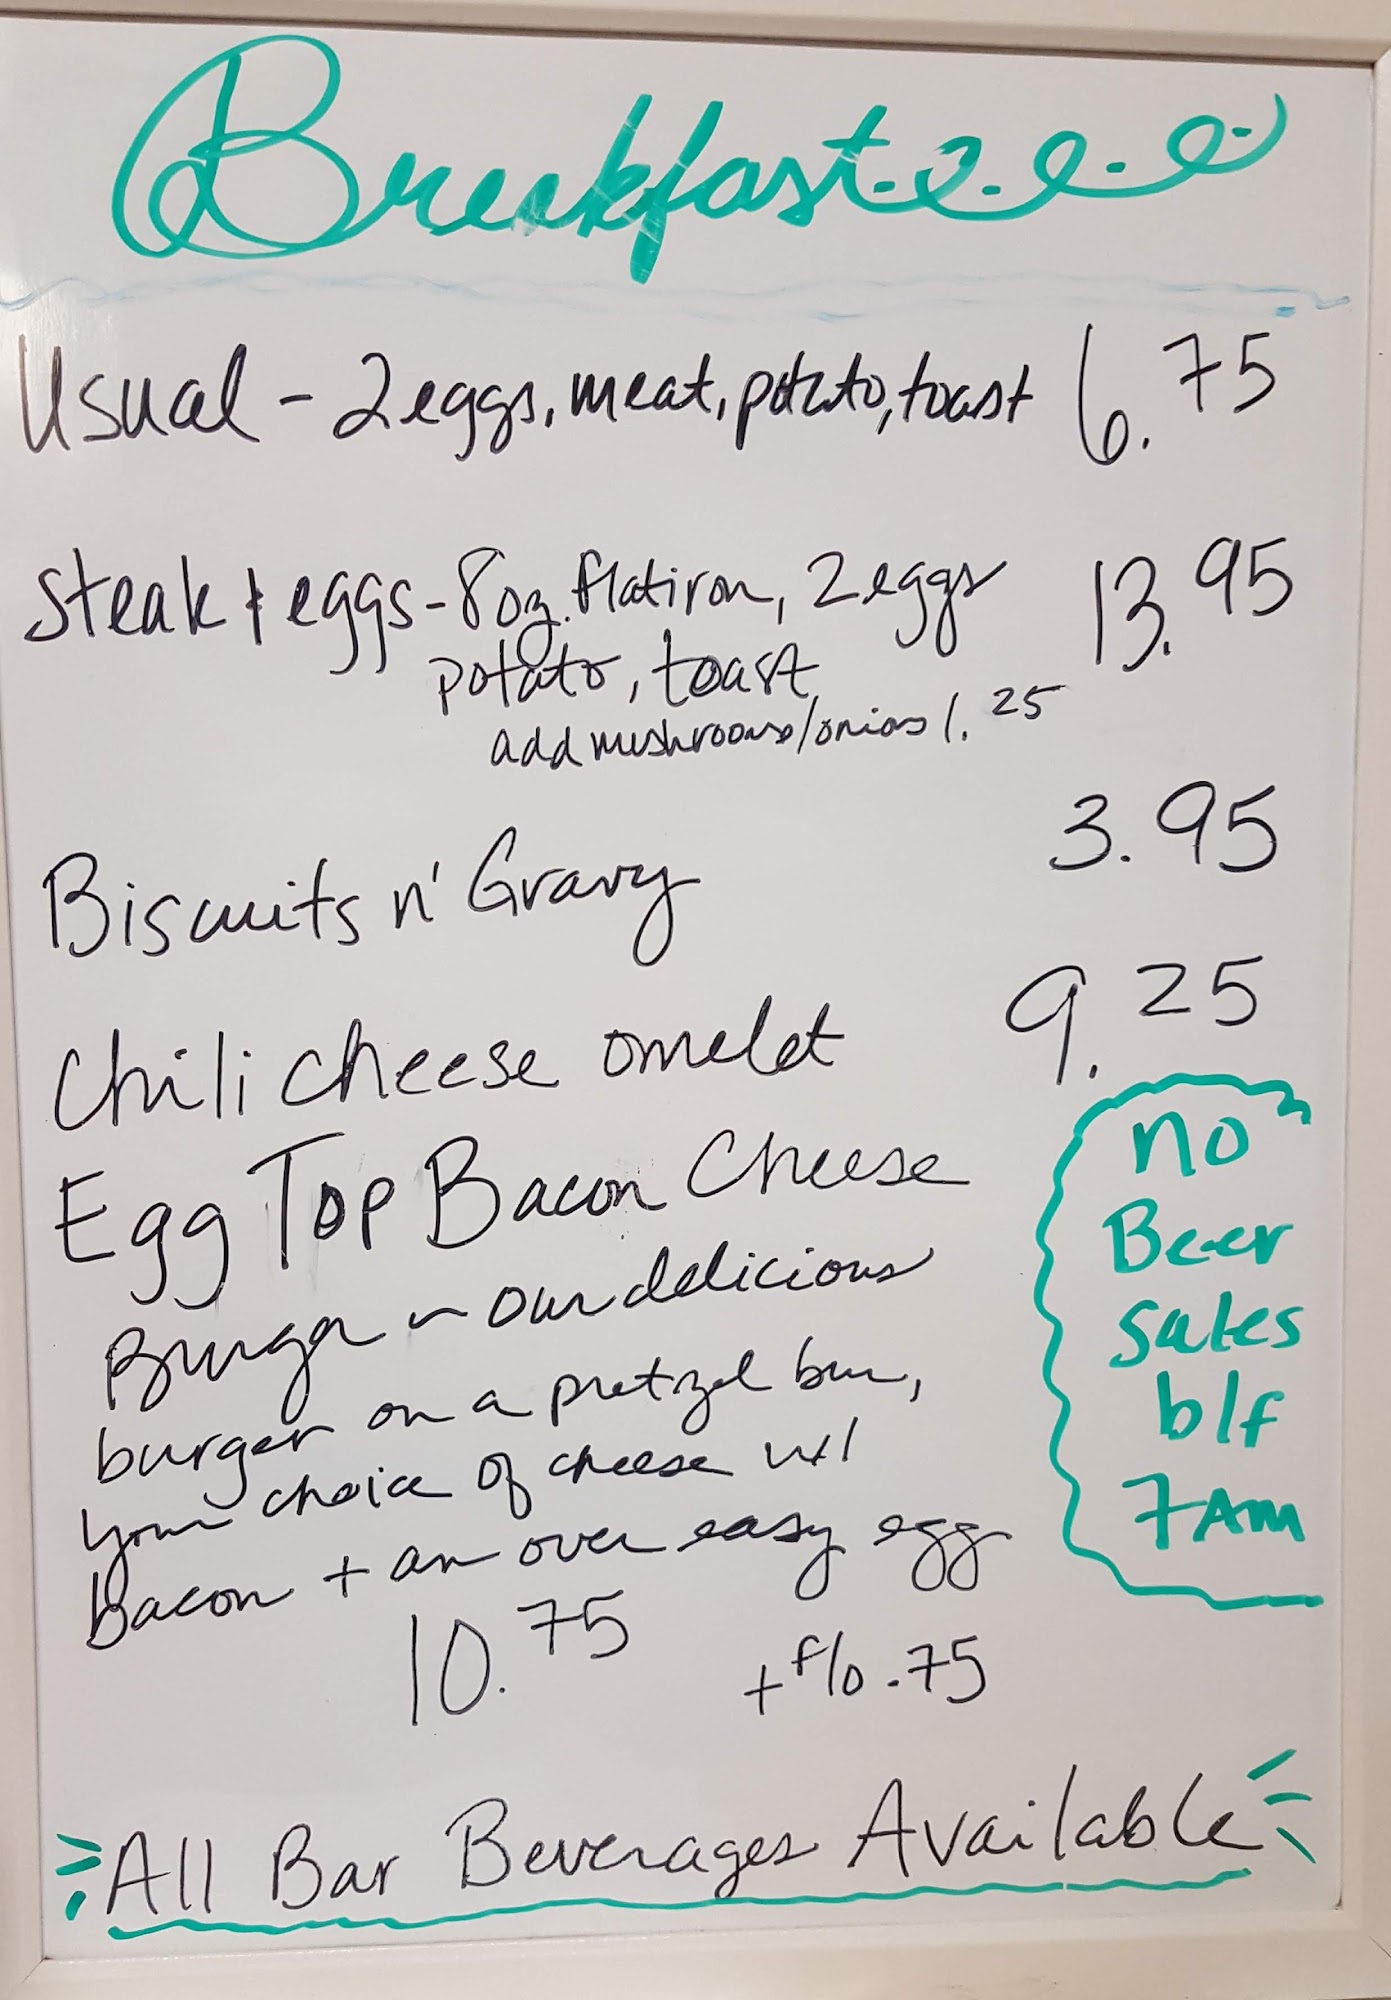 Breakfast...
Usual - 2 eggs, meat, potato, toast 6.75
Steak & eggs - 8oz. flatiron, 2 eggs 13.95
potato, toast
add mushrooms/onions 1.25
Biscuits n' Gravy 3.95
Chili cheese omelet 9.25
Egg Top Bacon Cheese
Burger ~ our delicious
burger on a pretzel bun,
your choice of cheese w/
bacon + an over easy egg
10.75 + f/o .75
no
Beer
sales
b/f
7Am
All Bar Beverages Available